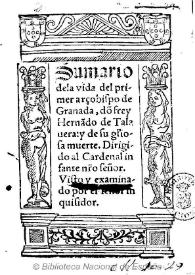 Sumario
dela vida del pri
mer arçobispo de
Granada, dõ frey
Hernãdo de Tala
uera: y de su gl̃io
sa muerte. Dirigi
do al Cardenal in
fante nr̃o señor.
Visto y examina
do por el señor in
quisidor.
© Biblioteca Nacional de España